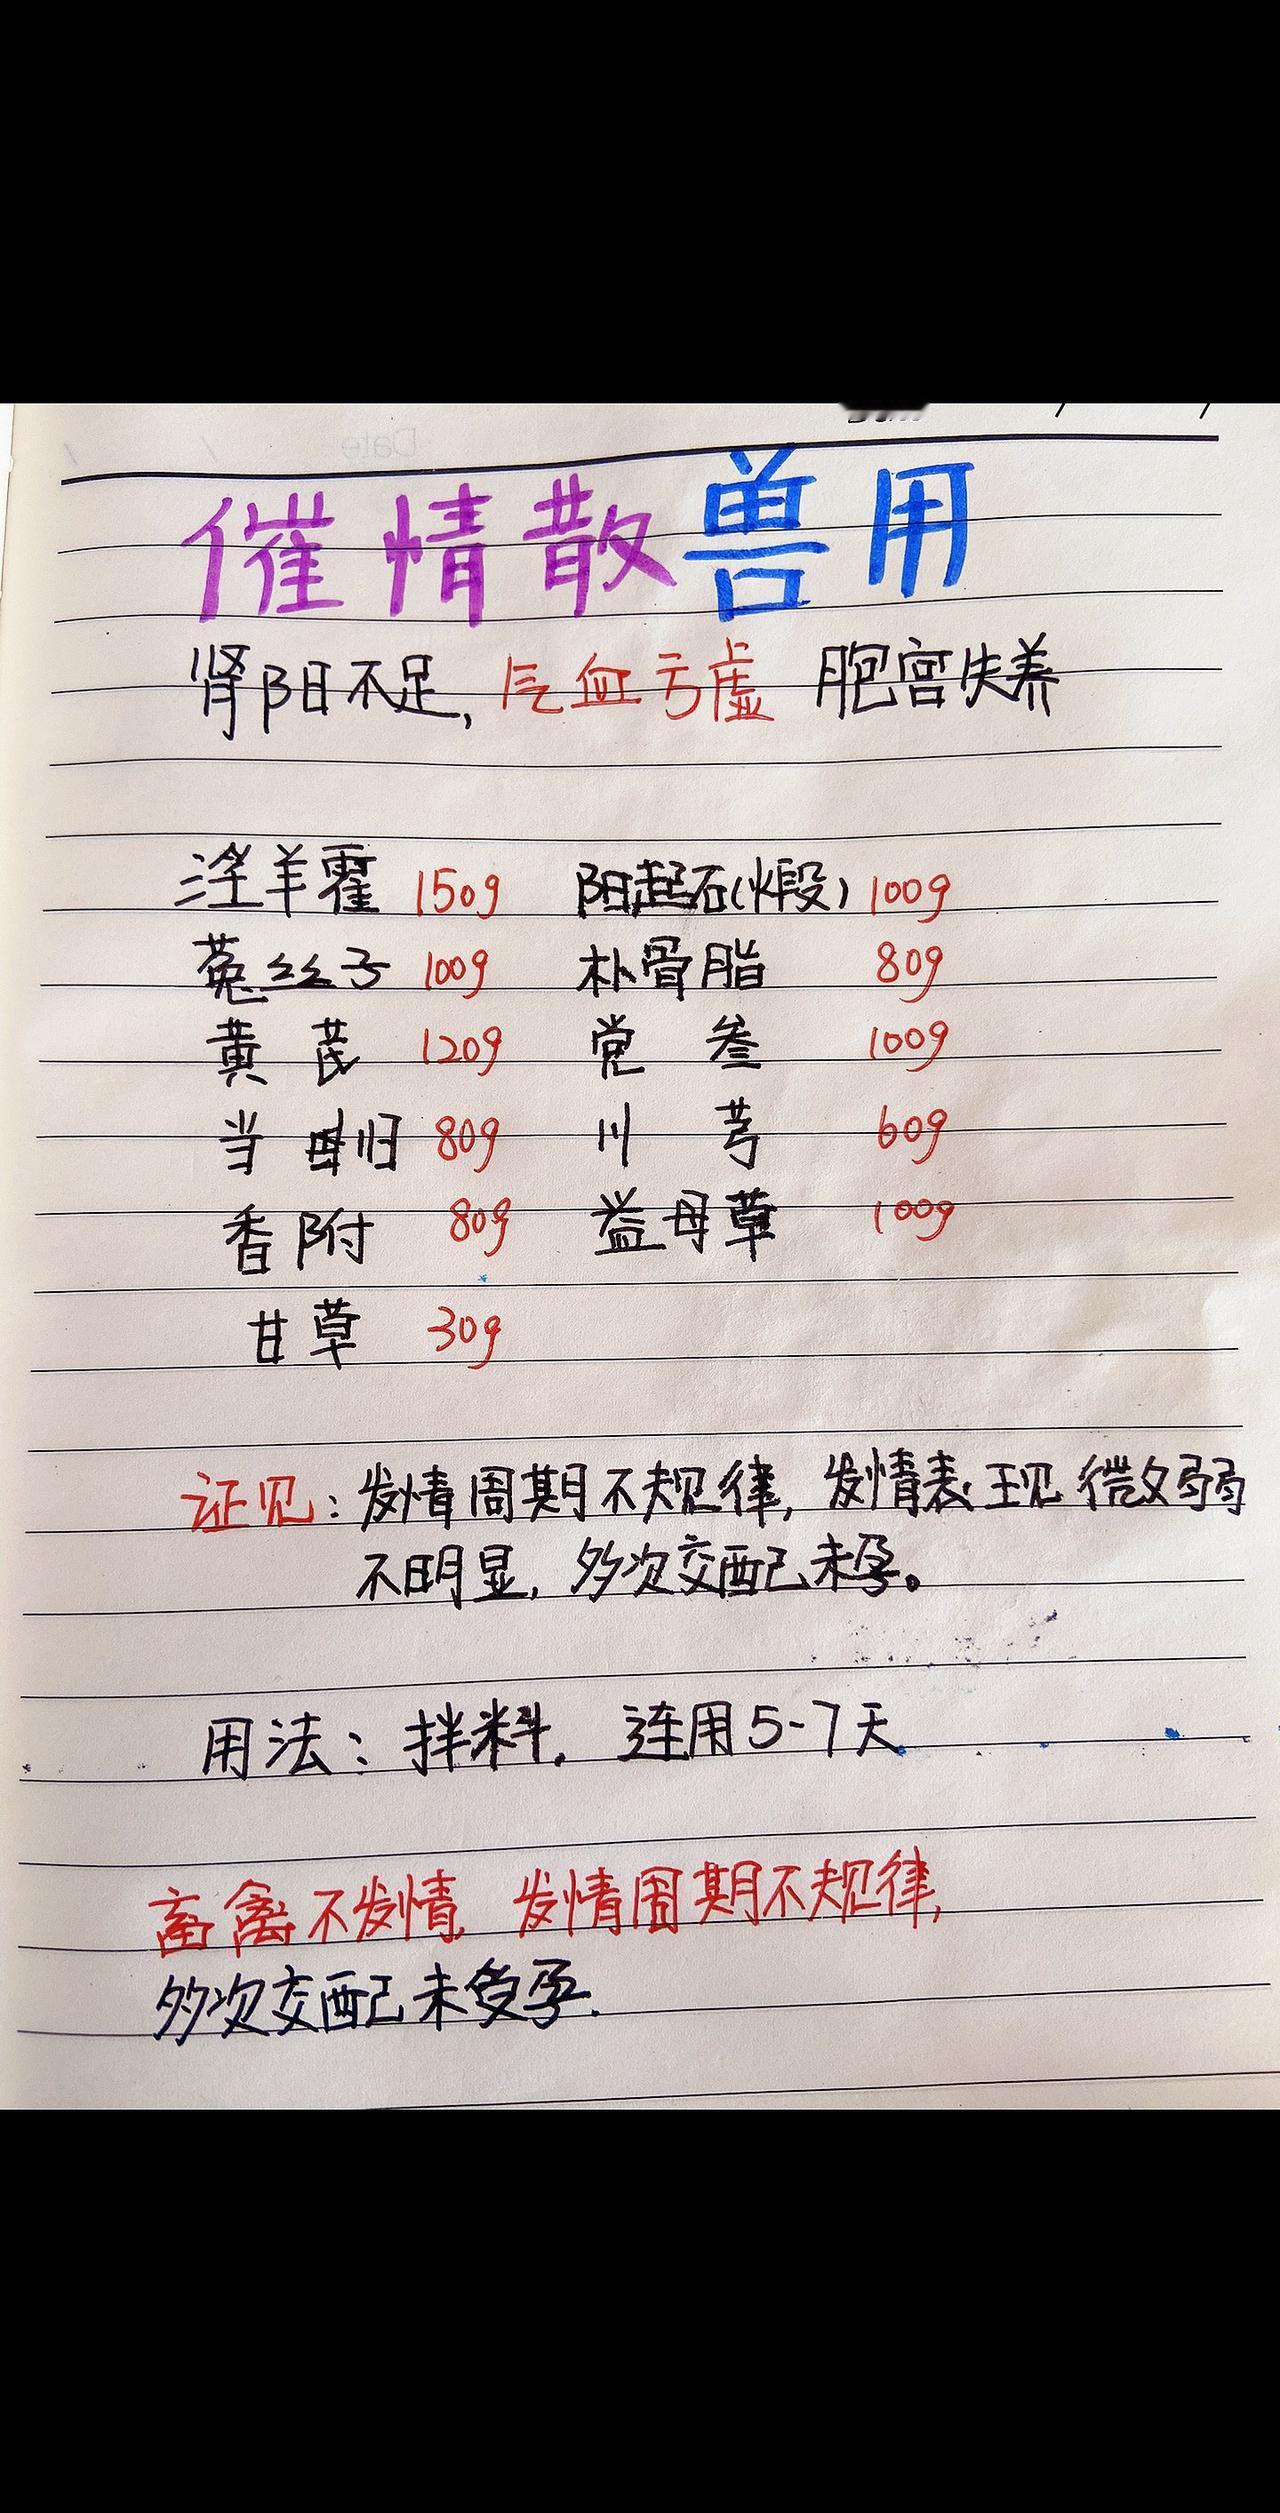 Date
催情散兽用
肾阳不足，气血亏虚 胞宫失养
淫羊藿 150g 阳起石(煅) 100g
菟丝子 100g 朴骨脂 80g
黄芪 120g 党参 100g
当归 80g 川芎 60g
香附 80g 益母草 100g
甘草 30g
证见：发情周期不规律，发情表现微弱
不明显，多次交配已未孕。
用法：拌料. 连用5-7天
畜禽不发情，发情周期不规律，
多次交配已未受孕.